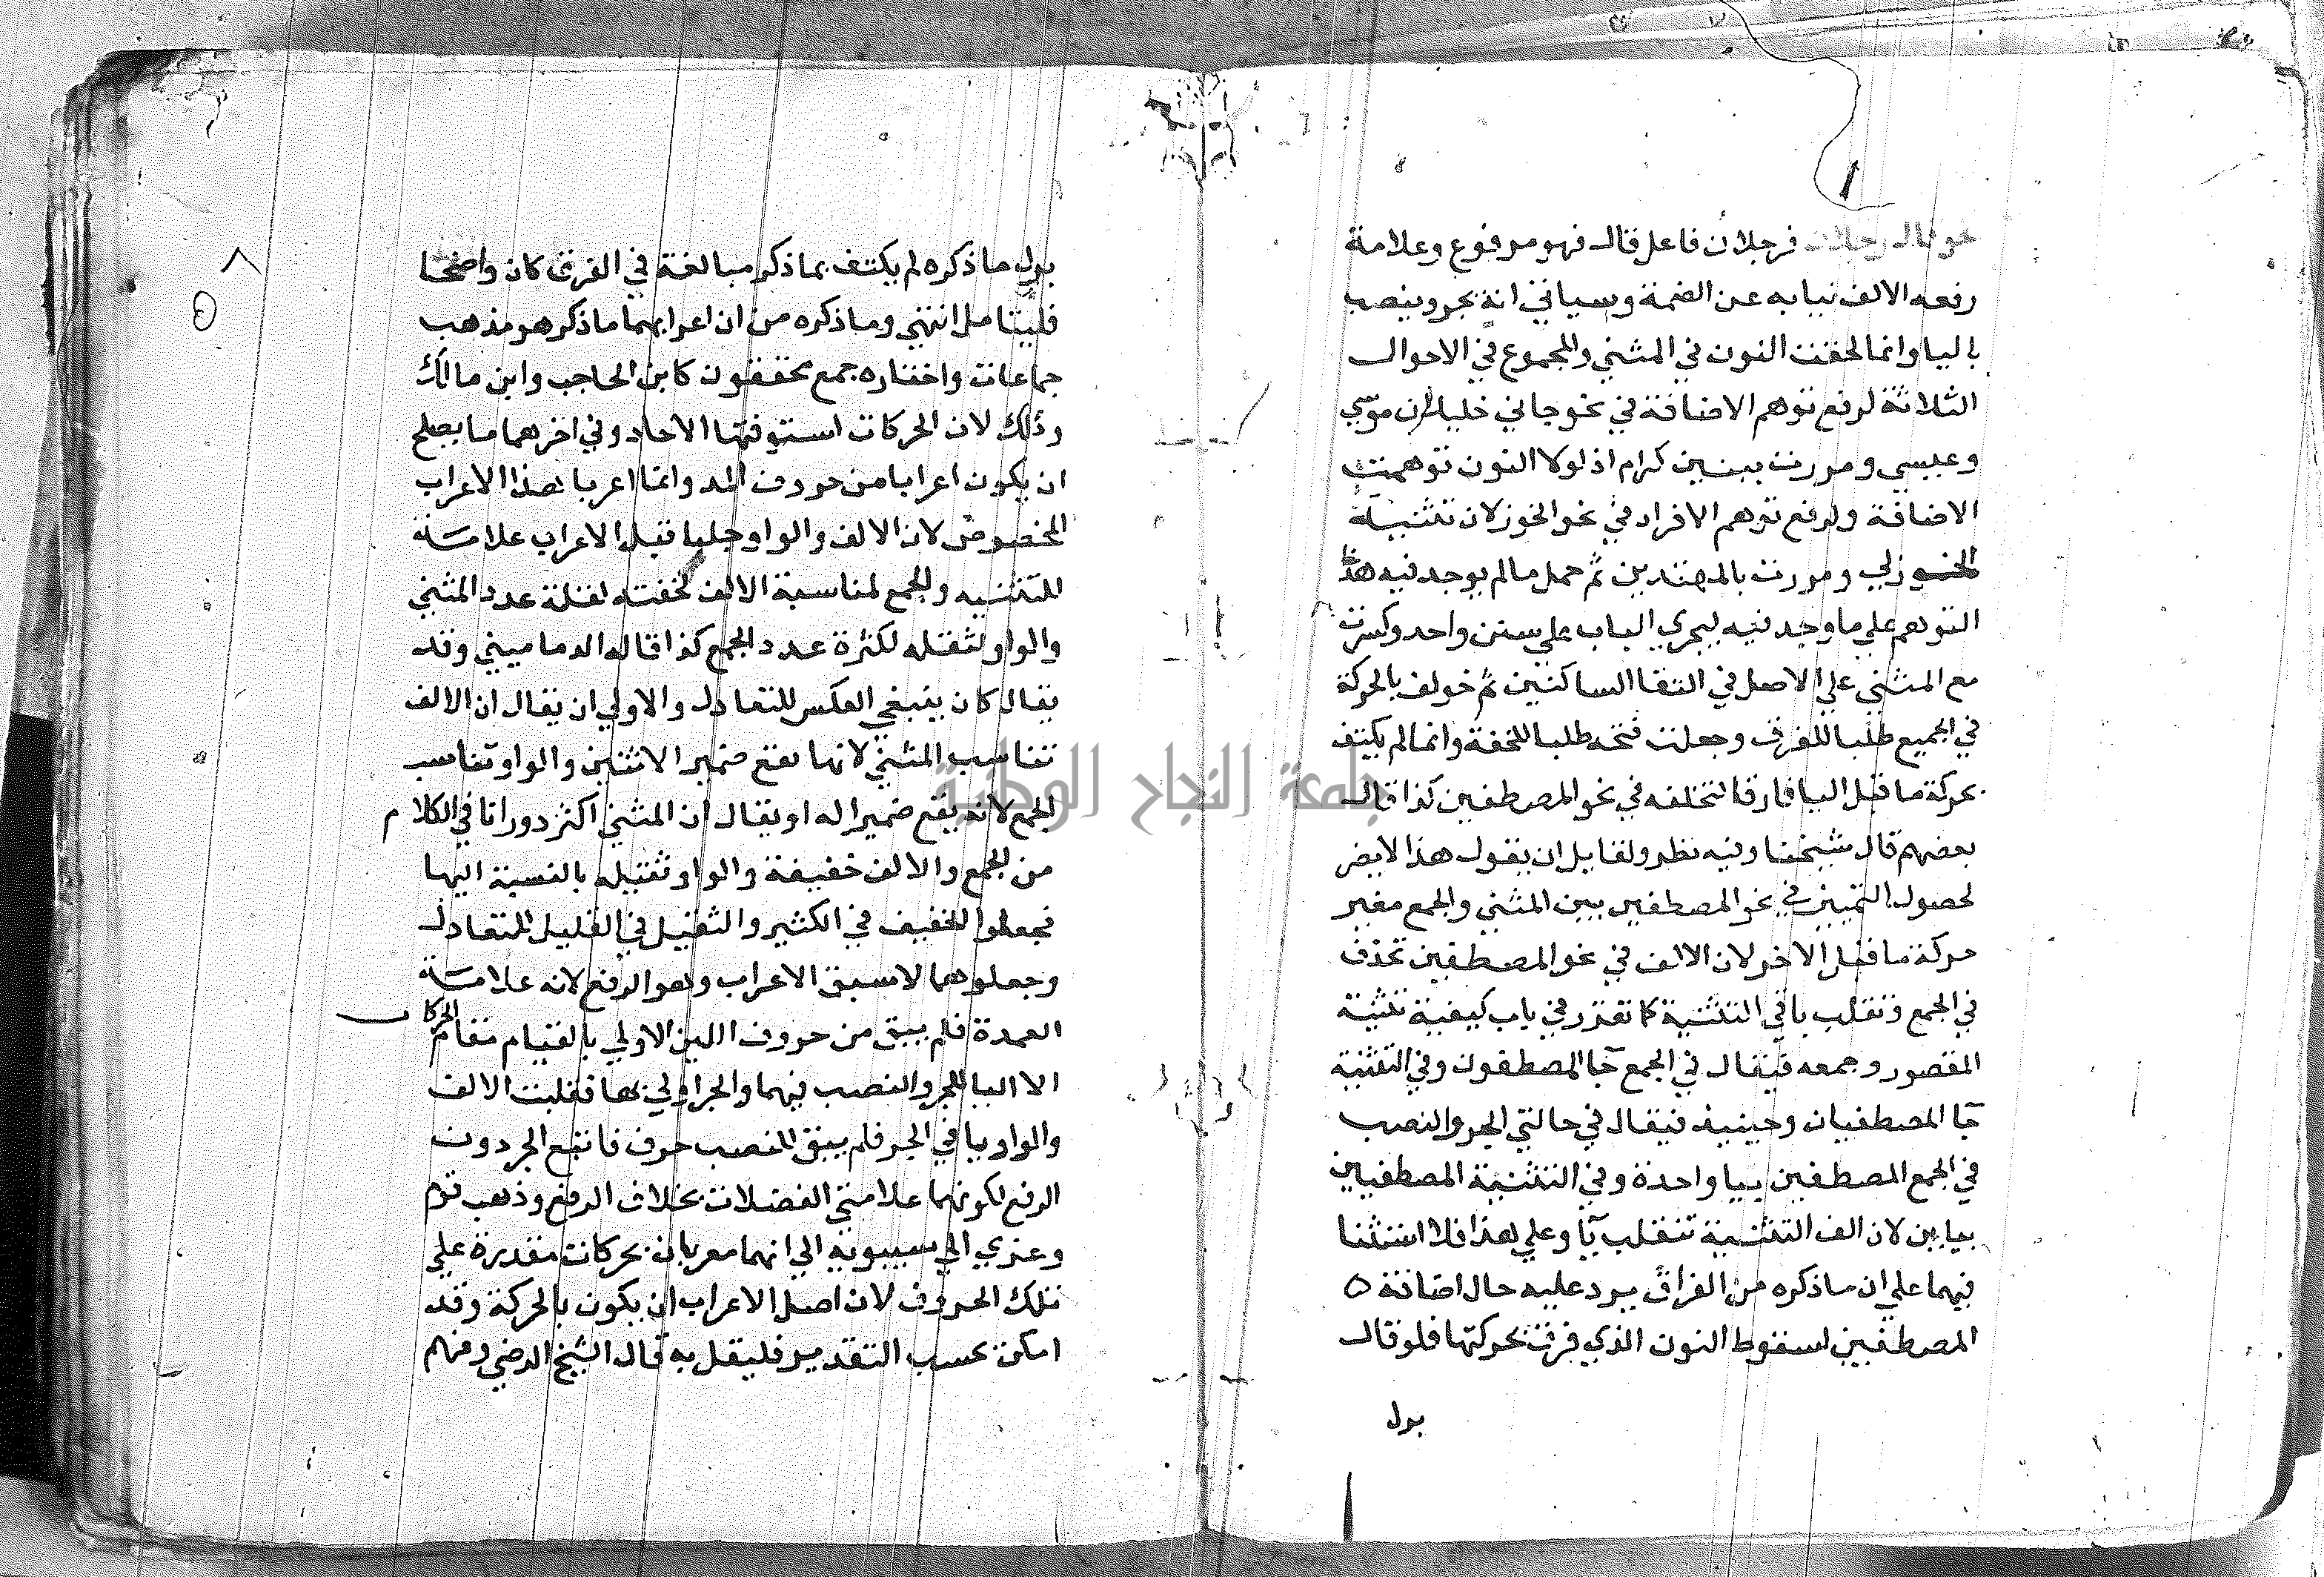 نحو قال رجلان فرجلان فاعل قال فهو مرفوع وعلامة
رفعه الالف نيابه عن الضمة وسياتي انه يجر وينصب
باليا وانما لحقت النون في المثني والمجموع في الاحوال
الثلاثة لرفع توهم الاضافة في نحو جاني خليلان موسي
وعيسي ومررت ببنين كرام اذ لولا النون توهمت
الاضافة ولرفع توهم الافراد في نحو الخوزلان تثنية
الخوزلي ومررت بالمهتدين ثم حمل مالم يوجد فيه هذا
التوهم علي ما وجد فيه ليجري الباب علي سنن واحد وكسرت
مع المثني علي الاصل في التقا الساكنين ثم خولف بالحركة
في الجميع طلبا للفرق وجعلت فتحه طلبا للخفة وانما لم يكتف
بحركة ما قبل اليا فارقا لتخلفه في نحو المصطفين كذا قال
بعضهم قال شيخنا وفيه نظر ولقايل ان يقول هذا لا يضر
لحصول التمييز في نحو المصطفين بين المثني والجمع مغير
حركة ما قبل الاخر لان الالف في نحو المصطفين تحذف
في الجمع وتقلب يا في التثنية كما تقرر في باب كيفية تثنية
المقصور وجمعه فيقال في الجمع جا المصطفون وفي التثنية
جا المصطفيان وحينيذ فيقال في حالتي الجر والنصب
في الجمع المصطفين بيا واحدة وفي التثنية المصطفيين
بيايين لان الف التثنية تنقلب يا وعلي هذا فلا استثنا
فيهما علي ان ما ذكره من الفراق يرد عليه حال اضافة ه
المصطفين لسقوط النون الذي فرقت بحركتها فلو قال
بدل
جامعة النجاح الوطنية
٨
بدل ما ذكره لم يكتف بما ذكر مبالغة في الفرق كان واضحا
فليتامل انتهي وما ذكره من ان اعرابهما ما ذكر هو مذهب
جماعات واختاره جمع محققون كابن الحاجب وابن مالك
وذلك لان الحركات استوفتها الاحاد وفي اخرهما ما يصلح
ان يكون اعرابا من حروف المد وانما اعربا بهذا الاعراب
المخصوص لان الالف والواو جلبا قبل الاعراب علامة
للتثنيه والجمع لمناسبة الالف لخفته لقلة عدد المثني
والواو لثقله لكثرة عدد الجمع كذا قاله الدماميني وقد
يقال كان ينبغي العكس للتعادل والاولي ان يقال ان الالف
تناسب المثني لانها تقع ضمير الاثنين والواو تناسب
الجمع لانه يقع ضمير اله او يقال ان المثني اكثر دورانا في الكلام
من الجمع والالف خفيفة والواو ثقيله بالنسبة اليها
فجعلوا الخفيف في الكثير والثقيل في القليل للتعادل
وجعلوهما لاسبق الاعراب وهو الرفع لانه علامة
العمدة فلم يبق من حروف اللين الاولي بالقيام مقام الحركات
الا اليا للجر والنصب فيهما والجر اولي بها فقلبت الالف
والواو يا في الجر فلم يبق للنصب حرف فاتبع الجر دون
الرفع لكونهما علامتي الفضلات بخلاف الرفع وذهب قوم
وعزي الي سيبويه الي انهما معربان بحركات مقدرة علي
تلك الحروف لان اصل الاعراب ان يكون بالحركة وقد
امكن بحسب التقدير فليقل به قال الشيخ الرضي ومنهم